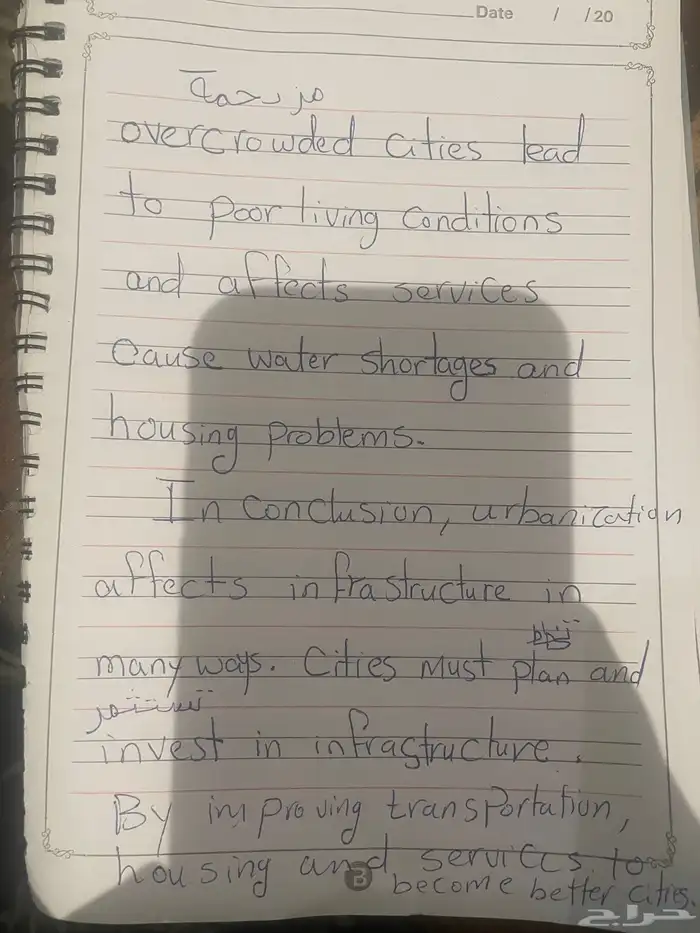 Date / / 20
مزدحمة
overcrowded cities lead
to poor living conditions
and affects services
cause water shortages and
housing problems.
In conclusion, urbanization
affects infrastructure in
many ways. Cities must plan and
تستثمر
invest in infrastructure.
By improving transportation,
housing and services to
become better cities.
حراج